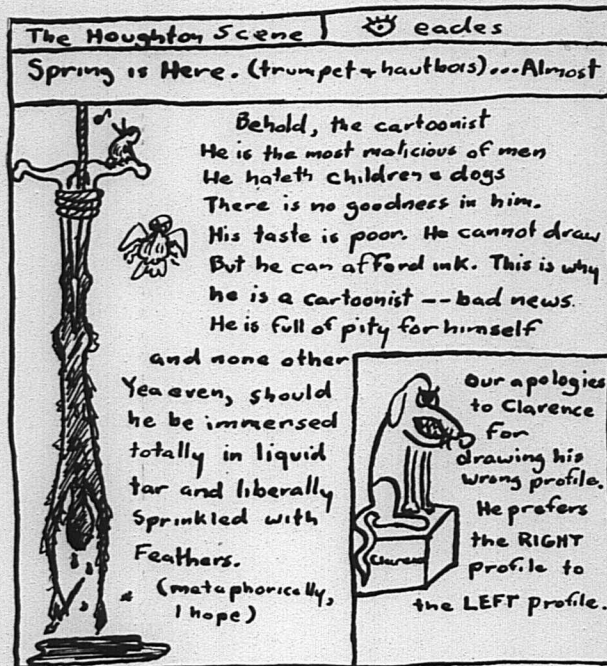 The Houghton Scene
eades
Spring is Here. (trumpet & hautbois)...Almost
Behold, the cartoonist
He is the most malicious of men
He hateth children & dogs
There is no goodness in him.
His taste is poor. He cannot draw
But he can afford ink. This is why
he is a cartoonist -- bad news.
He is full of pity for himself
and none other
Yea even, should
he be immersed
totally in liquid
tar and liberally
Sprinkled with
Feathers.
(metaphorically,
I hope)
Our apologies
to Clarence
for
drawing his
wrong profile.
He prefers
the RIGHT
profile to
the LEFT profile.
Clarence